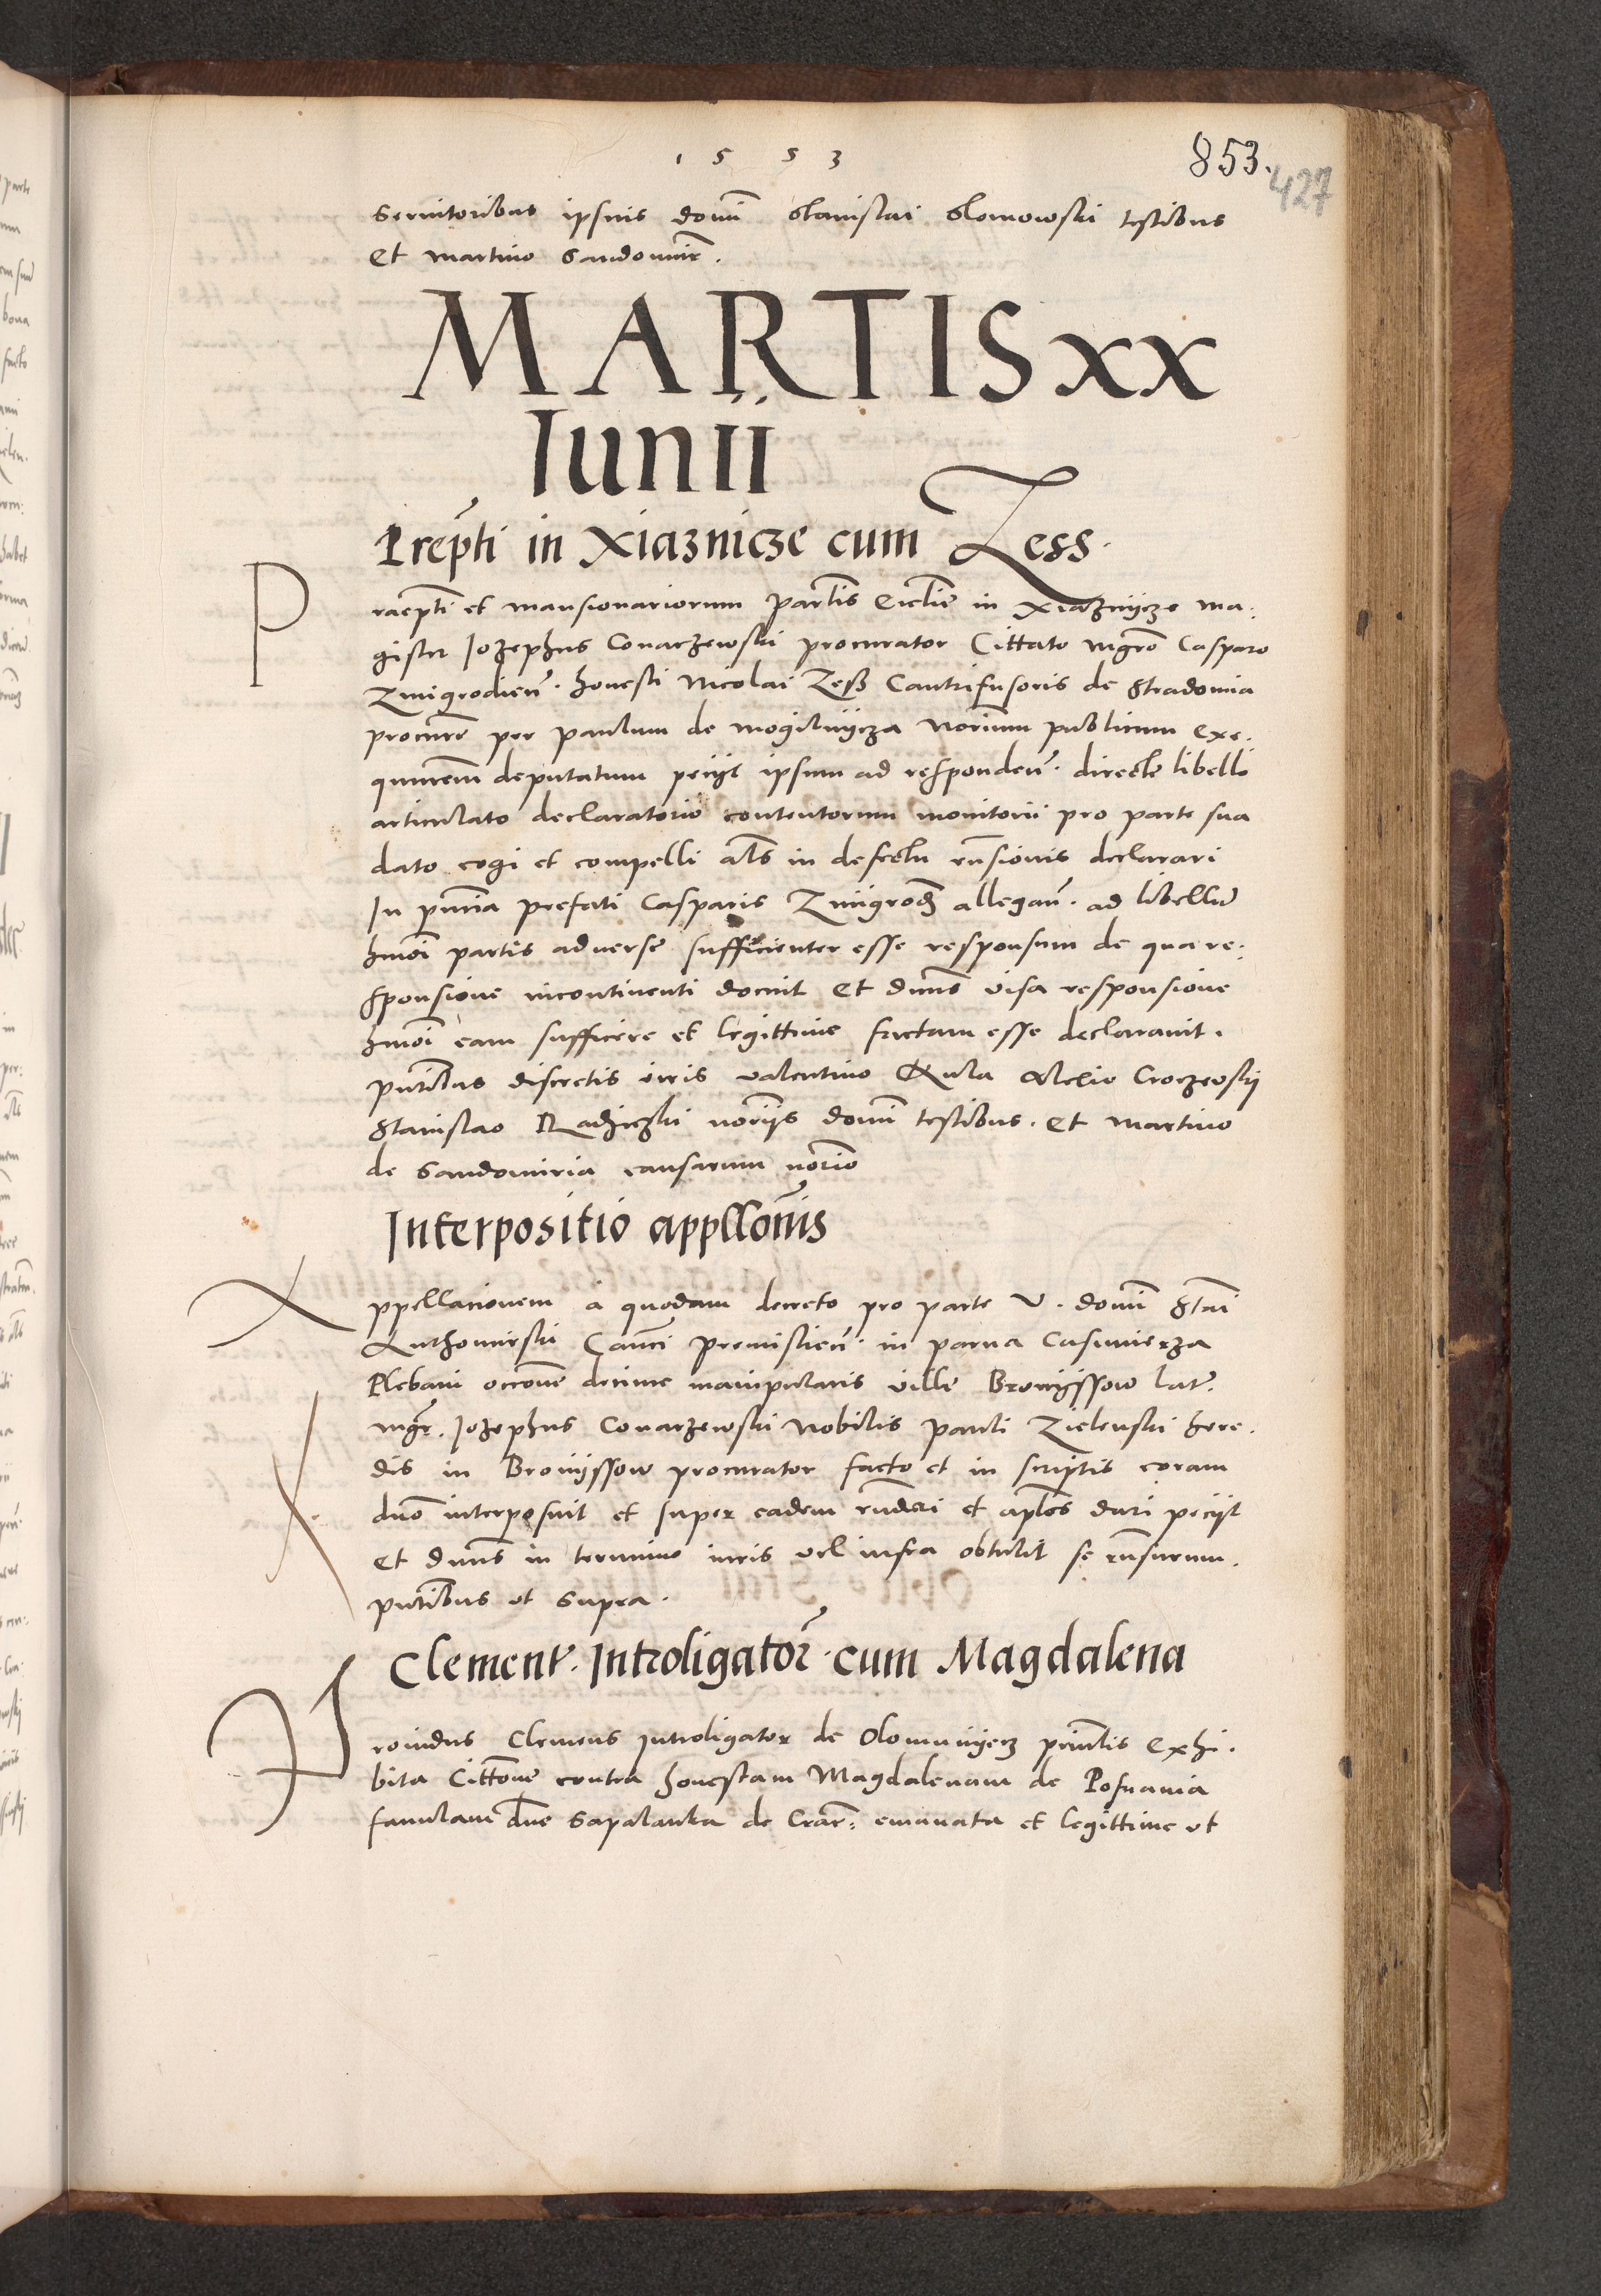 1553
853.
427
servitoribus ipsius domini Stanislai Slomowski testibus
Et martino Sandomir.
MARTIS xx
Iunii
Prepti in Xiaznicze cum Zess.
Praepti et mansionariorum partlis Ecclie in Xiaznycze ma-
gister Iozephus Conarzewski procurator Cittato mgro Casparo
Zmigrodien. honesti Nicolai Zess Cantrifusoris de Stradomia
procure per paulum de mogilnycza norium publicum exe-
quutorem deputatum peciit ipsum ad responden. directe libello
articulato declaratorio contentorum monitorii pro parte sua
dato cogi et compelli als in defectu rnsionis declarari
In pntia prefati Casparis Zmigrod allegan. ad libellum
hmoi partis adverse sufficienter esse responsum de qua re-
sponsione incontinenti docuit Et dnus visa responsione
hmoi eam sufficere et legittime factam esse declaravit.
pntibus discretis viris valentino Kula Alexio Croczewskij
Stanislao Radziczki noriis domini testibus. Et martino
de Sandomiria causarum norio
Interpositio appllonis
Appellacionem a quodam decreto pro parte V. domini Stai
Luthomirski Canci Premislien. in parva Casimierza
Plebani occone decime manipularis ville Bronyssow lat.
mgr. Iozephus Conarzewski Nobilis Pauli Zielenski here-
dis in Bronyssow procurator facto et in scriptis coram
dno interposuit et super eadem rnderi et aplos dari peciit
et dnus in termino iuris vel infra obtulit se rnsurum.
pntibus ut supra.
Clement. Introligator. cum Magdalena
Providus Clemens Introligator de Olomunyecz principlis Exhi-
bita Cittone contra honestam Magdalenam de Posnania
famulam dne Sapalanka de Crac. emanata et legittime ut